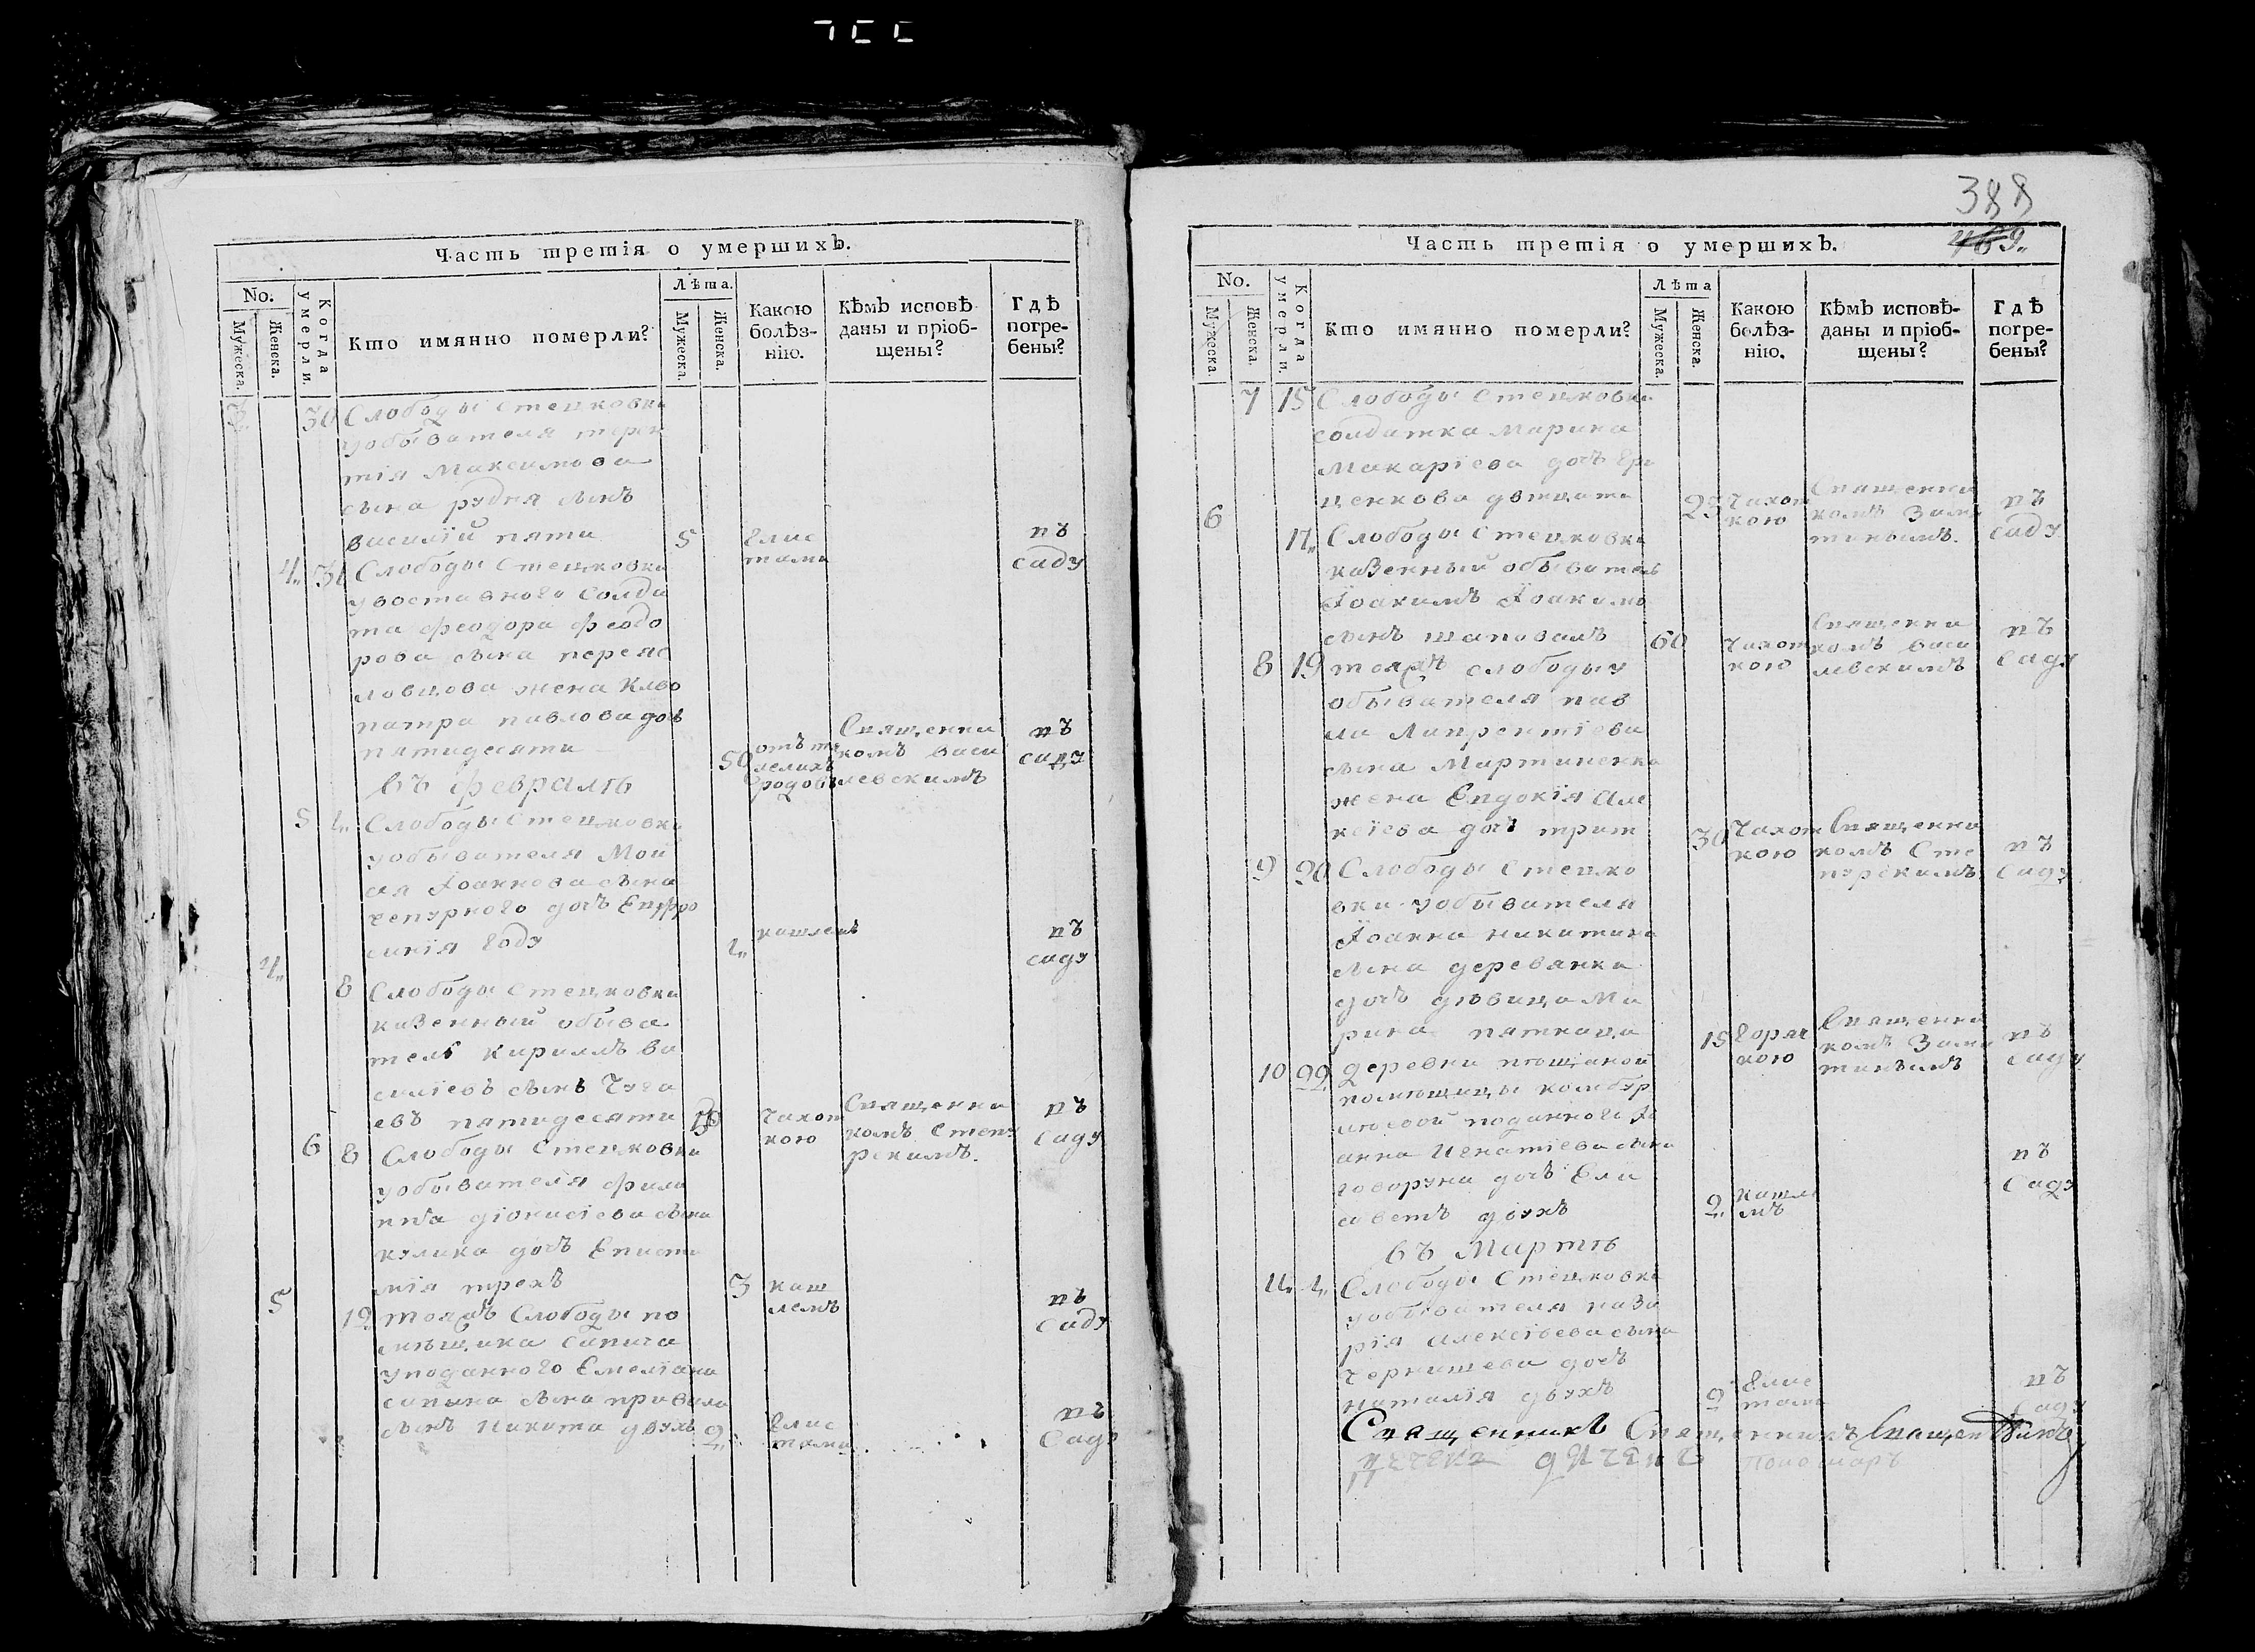 Часть третія о умершихъ.
No.
Мужеска.
Женска.
Когда умерли.
Кто имянно померли?
Лѣта.
Мужеска.
Женска.
Какою болѣз-
нію.
Кѣмъ исповѣ-
даны и пріоб-
щены?
Гдѣ
погре-
бены?
3. 30 Слободы Стецковки
уобывателя терен
тія Максимова
сына рудня сынъ
василій пяти 5 глис въ
тами саду
4. 31 Слободы Стецковки
уоставного Солда
та феодора феодо
рова сына пере
ловцова жена Клео
патра павлова дочь
пятидесяти 50 Священни
комъ васи
левскимъ въ
саду
въ февралѣ
5 1. Слободы Стецковки
уобывателя Мой
сея Іоаннова сына
чепурного дочь Евфро
синія году 1. кашлемъ въ
саду
4. 8 Слободы Стецковки
казенный обыва
тель кириллъ ва
силіевъ сынъ Чуга
евъ пятидесяти чахот Священни въ
кою комъ Степу саду
рскимъ.
6 8 Слободы Стецковки
уобывателя фили
ппа діонисіева сына
кулика дочь Еписти
мія трехъ 3 каш въ
лемъ саду
5 12 тояжъ Слободы по
мѣщика Сапича
уподанного Емеліана
сына привала
сынъ Никита двухъ 2. глис въ
тами саду
388
469.
Часть третія о умершихъ.
No.
Мужеска.
Женска.
Когда умерли.
Кто имянно померли?
Лѣта
Мужеска.
Женска.
Какою
болѣз-
нію.
Кѣмъ исповѣ-
даны и пріоб-
щены?
Гдѣ
погре-
бены?
7 15 Слободы Стецковки
солдатка Марина
Макаріева дочь
ценкова двтцати 23 чахот Священни въ
кою комъ саду
6 17. Слободы Стецковки
казенный обыватель
Іоакимъ Іоакимъ
сынъ шаповалъ 60 чахот Священни въ
кою комъ васи саду
левскимъ
8 19 тояжъ слободы у
обывателя пав
ла Лаврентіева
сына Мартиненка
жена Евдокія Але
ксіева дочь трит 30 чахот Священни въ
кою комъ Сте саду
пурскимъ
9 20 Слободы Стецко
вки уобывателя
Іоанна никитина
сына деревянка
дочь дѣвица Ма
рина пятнаца 15 горяч Священни въ
кою комъ саду
10 22 деревни
помѣщицы
поданного Іо
анна Игнатіева сына
говоруна дочь Ели
саветъ двухъ 2. кашле въ
мъ саду
въ Мартѣ
11. 1. Слободы Стецковки
уобывателя наза
рія алексіева сына
Чернишева дочь
наталія двухъ 2 глис въ
тами саду
Священникъ Священникъ Священникъ
дячекъ Пономарь